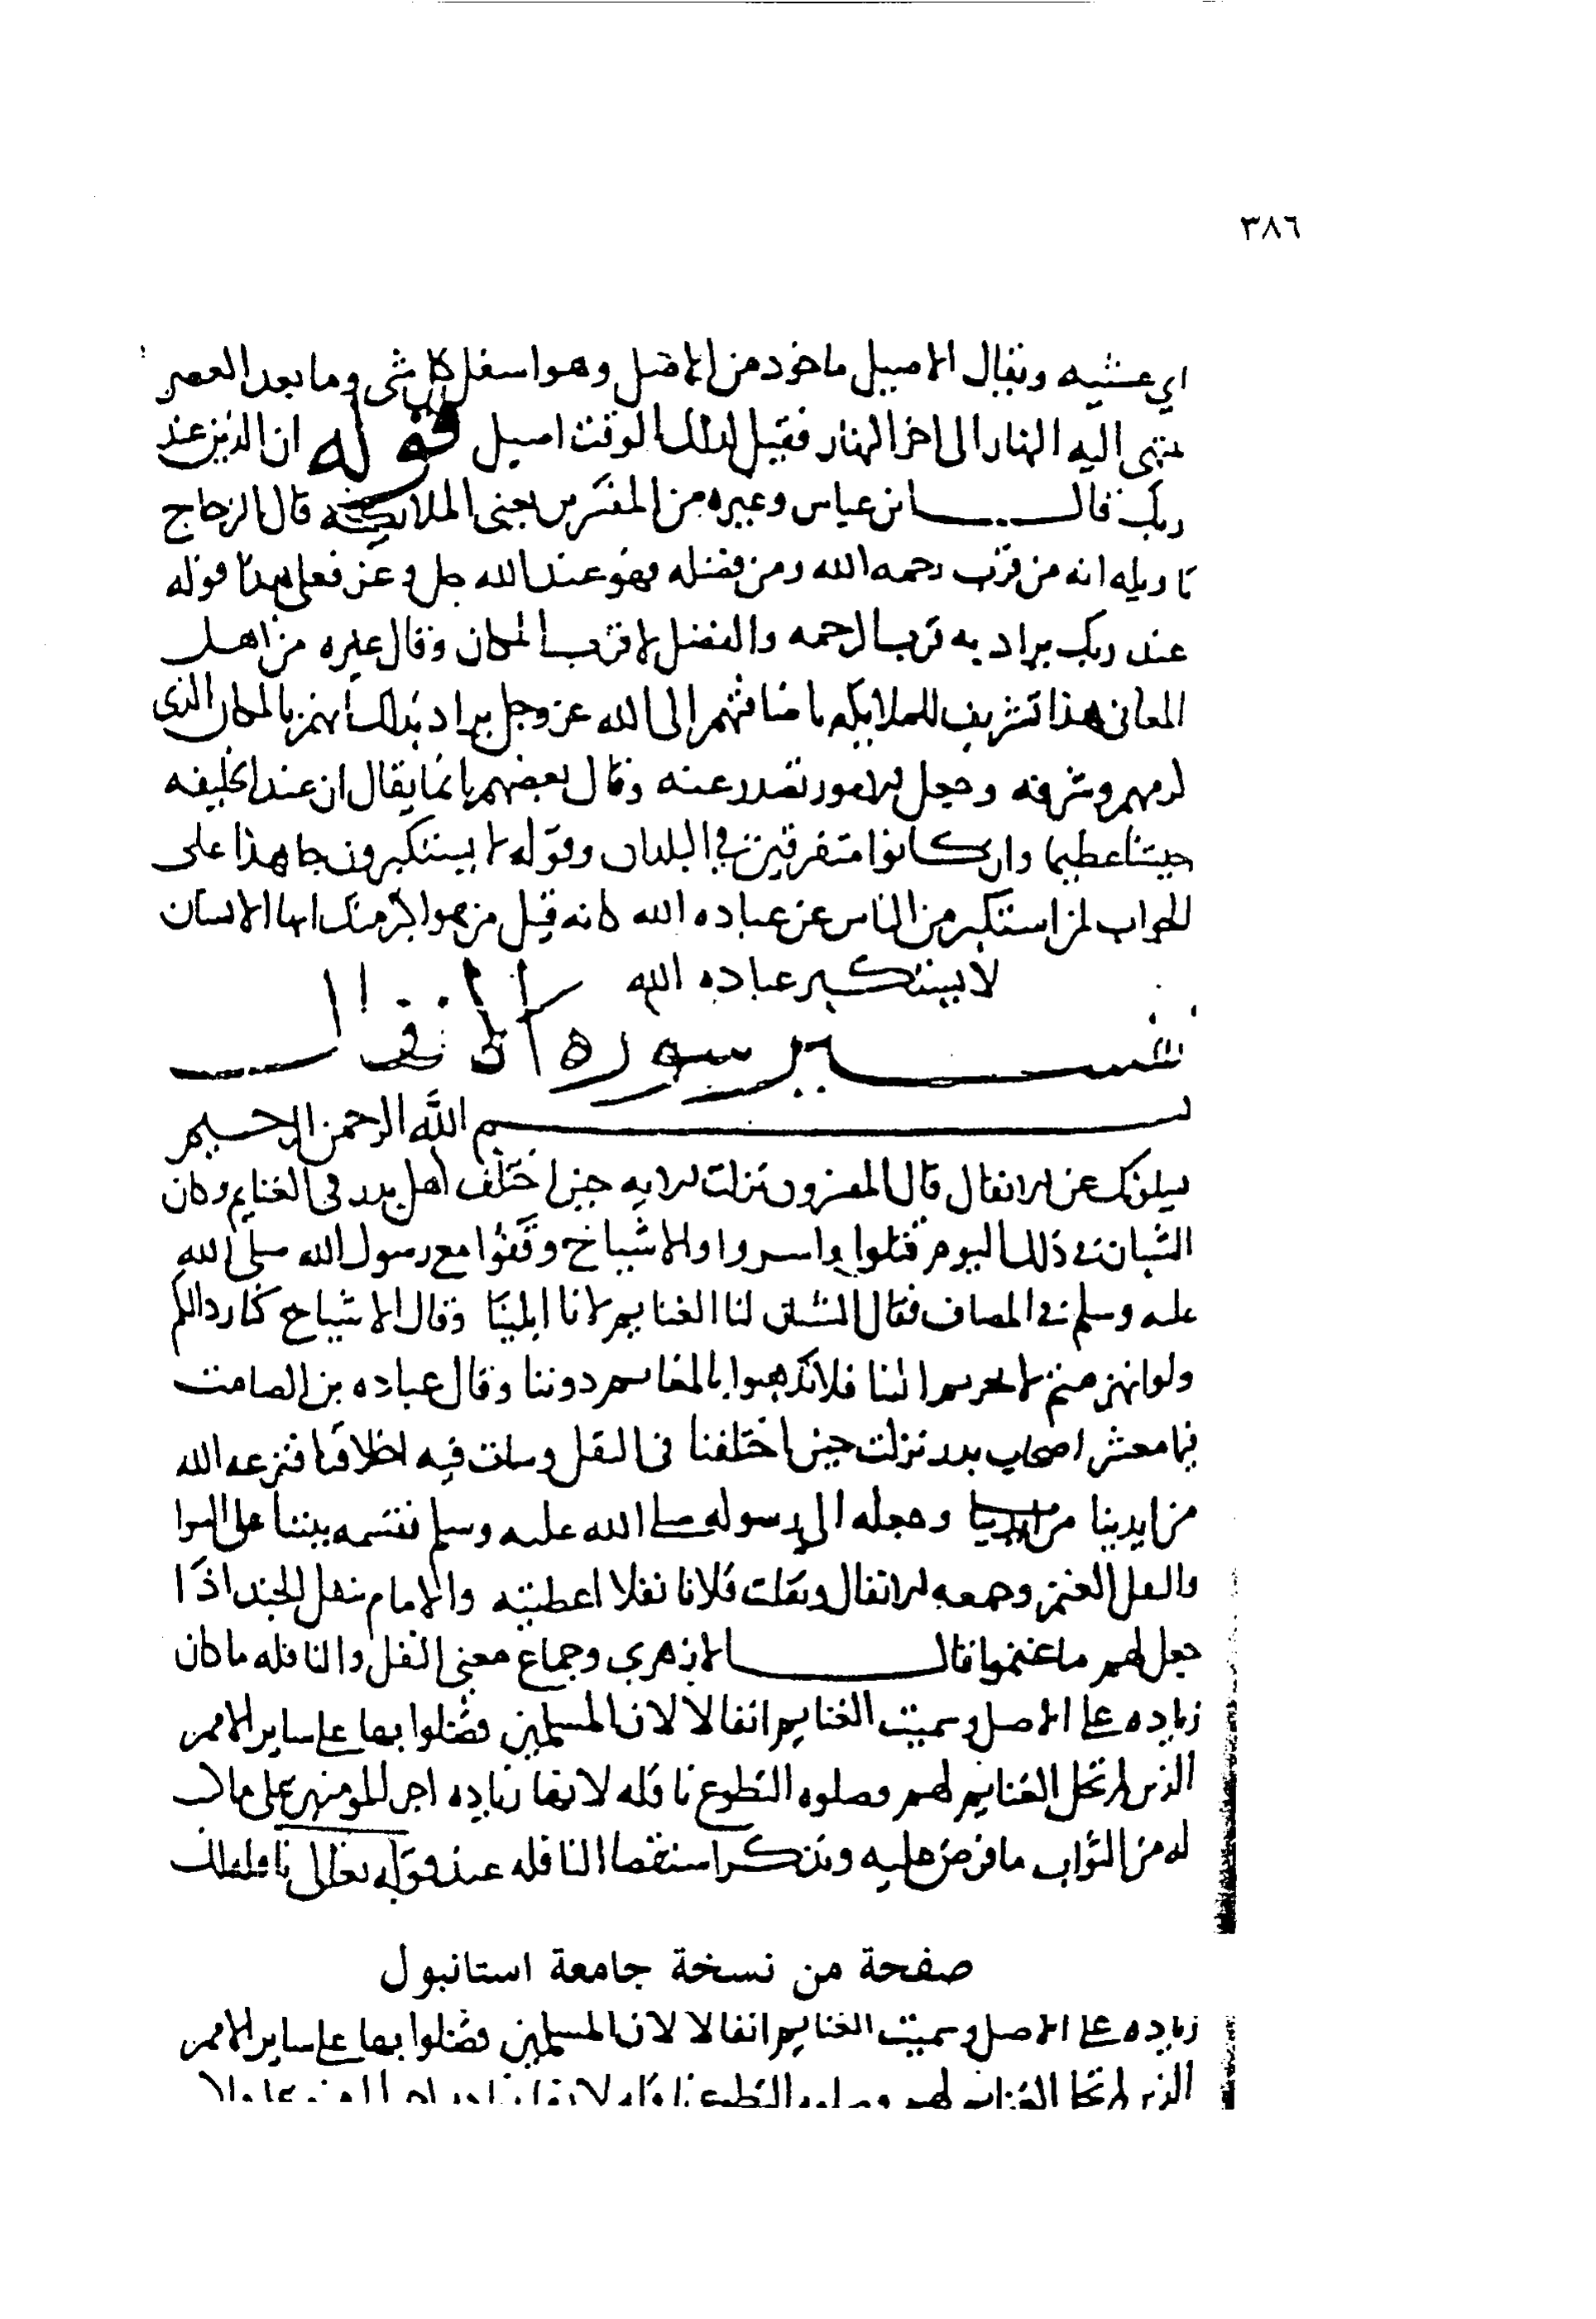 ٣٨٦
اي عشيه ويقال الاصيل ماخوذ من الاصل وهو اسفل كل شي وما بعد العصر
منتهى اليه النهار الى اخر النهار فقيل لذلك الوقت اصيل قوله ان الذين عند
ربك قال ابن عباس وغيره من المفسرين يعني الملايكة قال الزجاج
تاويله انه من قرب رحمه الله ومن فضله فهو عند الله جل وعز فعلى هذا قوله
عند ربك يراد به قرب الرحمه والفضل لا قرب المكان وقال غيره من اهل
المعاني هذا تشريف للملايكه باضافتهم الى الله عز وجل يراد بذلك انهم بالمكان الذي
كرمهم وشرفه وجعل الامور تصدر عنه وقال بعضهم انما يقال ان عند الخليفه
جيشا عظيما وان كانوا متفرقين في البلدان وقوله لا يستكبرون جا هذا على
الجواب لمن استكبر من الناس عن عباده الله لانه قيل من هو اكبر منك ايها الانسان
لا يستكبر عباده الله
تفسير سوره الانفال
بسم الله الرحمن الرحيم
يسلونك عن الانفال قال المفسرون نزلت الايه حين اختلف اهل بدر في الغنايم وكان
الشبان في ذلك اليوم قتلوا واسروا والاشياخ وقفوا مع رسول الله صلى الله
عليه وسلم في المصاف فقال الشبان لنا الغنايم لانا ابلينا وقال الاشياخ كنا ردا لكم
ولو انهزمتم لانحزتم الينا فلا تذهبوا بالمغانم دوننا وقال عباده بن الصامت
فينا معشر اصحاب بدر نزلت حين اختلفنا في النفل وسات فيه اخلاقنا فنزعه الله
من ايدينا من ايدينا وجعله الى رسوله صلى الله عليه وسلم فقسمه بيننا على السوا
والنفل الغنم وجمعه الانفال ونفلت فلانا نفلا اعطيته والامام ينفل الجند اذا
جعل لهم ما غنموا قال الازهري وجماع معنى النفل والنافله ما كان
زياده على الاصل وسميت الغنايم انفالا لان المسلمين فضلوا بها على ساير الامم
الذين لم تحل الغنايم لهم وصلوه التطوع نافله لانها زياده اجر للمومنين على مالـ
له من الثواب ما فرض عليه ونذكر استقصا النافله عند قوله تعالى نافله لك
صفحة من نسخة جامعة استانبول
زياده على الاصل وسميت الغنايم انفالا لان المسلمين فضلوا بها على ساير الامم
الذين لم تحل الغنايم لهم وصلوه التطوع نافله لانها زياده اجر